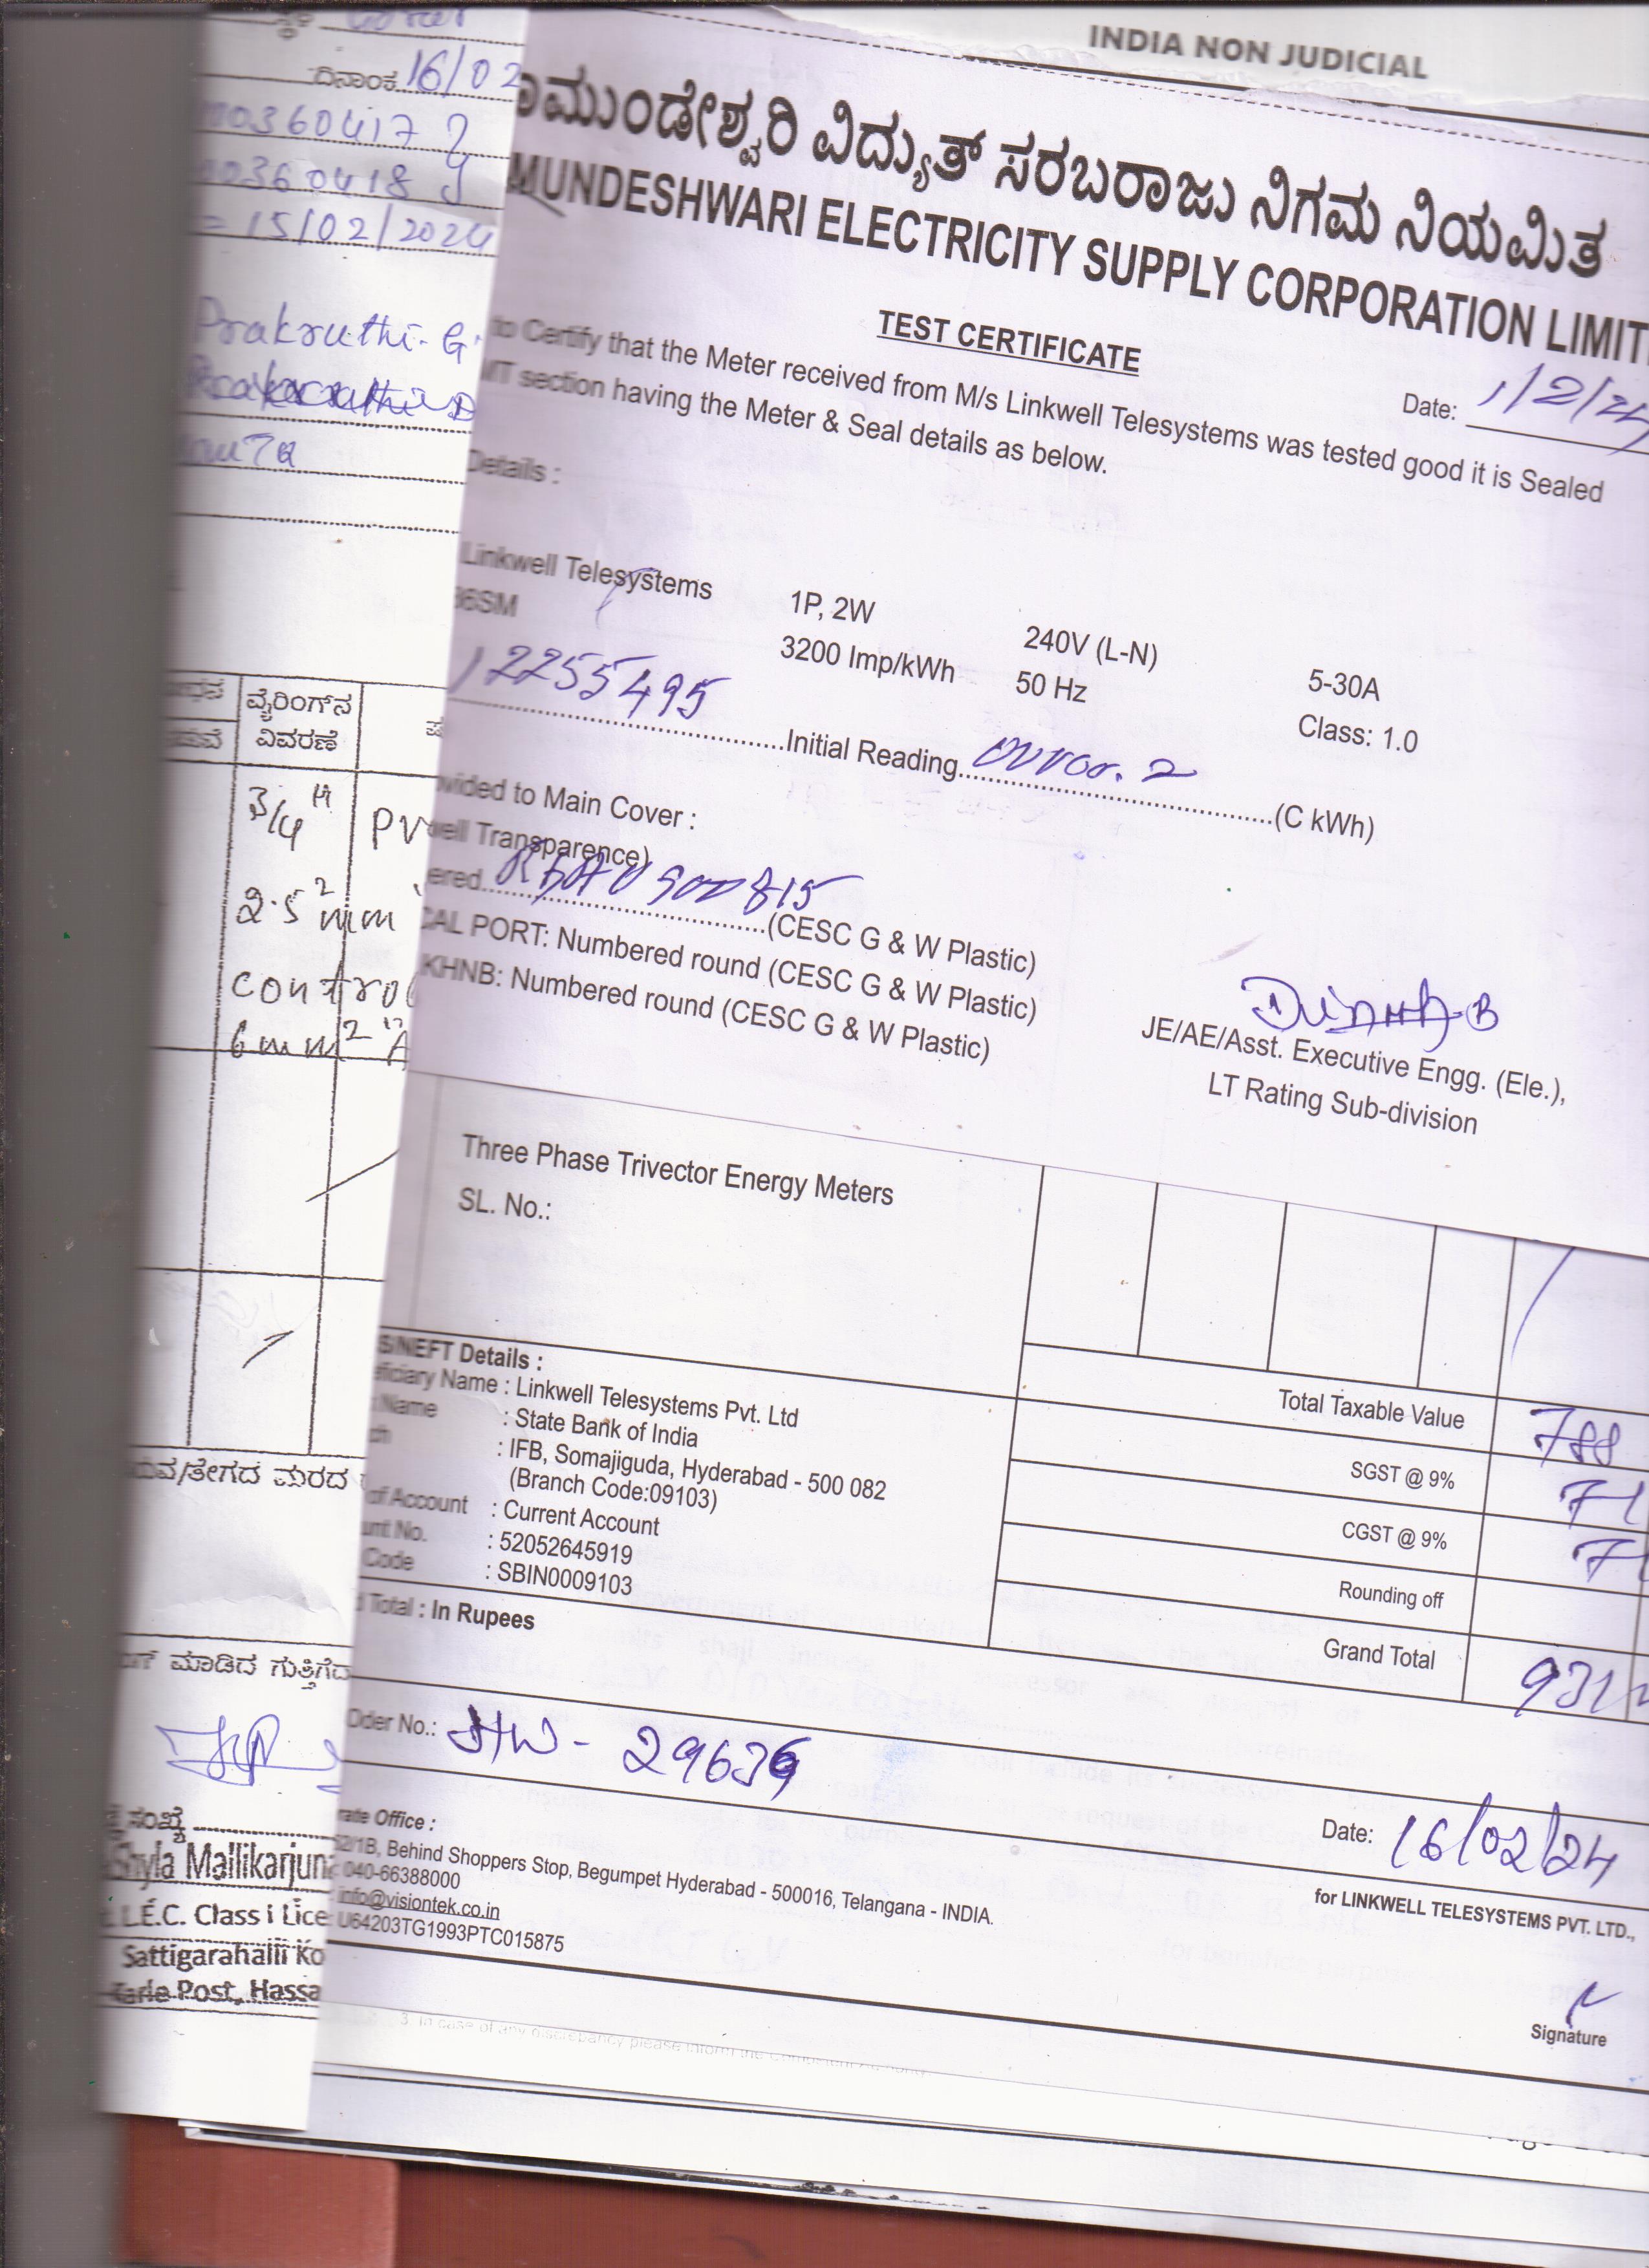 INDIA NON JUDICIAL
ದಿನಾಂಕ 16/02
00360417
00360418
= 15/02/2024
Prakruthi. G
ವೈರಿಂಗ್‌ನ
ವಿವರಣೆ
3/4"
PV
2.5 mm
6 mm
ಮರದ
ಮಾಡಿದ
ಸಂಖ್ಯೆ
Shyla Mallikarjuna
L.E.C. Class I Lice
Sattigarahalli Ko
Tarle Post, Hassa
ಾಮುಂಡೇಶ್ವರಿ ವಿದ್ಯುತ್ ಸರಬರಾಜು ನಿಗಮ ನಿಯಮಿತ
MUNDESHWARI ELECTRICITY SUPPLY CORPORATION LIMIT
TEST CERTIFICATE
Date: 1/2/24
to Certify that the Meter received from M/s Linkwell Telesystems was tested good it is Sealed
MT section having the Meter & Seal details as below.
Details :
Linkwell Telesystems 1P, 2W 240V (L-N) 5-30A
36SM 3200 Imp/kWh 50 Hz Class: 1.0
12255495 Initial Reading (C kWh)
ovided to Main Cover :
well Transparence)
ered (CESC G & W Plastic)
CAL PORT: Numbered round (CESC G & W Plastic)
KHNB: Numbered round (CESC G & W Plastic)
JE/AE/Asst. Executive Engg. (Ele.),
LT Rating Sub-division
Three Phase Trivector Energy Meters
SL. No.:
S/NEFT Details :
eficiary Name : Linkwell Telesystems Pvt. Ltd
Name : State Bank of India
ch : IFB, Somajiguda, Hyderabad - 500 082
(Branch Code:09103)
of Account : Current Account
unt No. : 52052645919
Code : SBIN0009103
Total Taxable Value 788
SGST @ 9% 71
CGST @ 9% 71
Rounding off
Grand Total 931
d Total : In Rupees
Oder No.: HW - 29636
Date: 16/02/24
rate Office :
62/1B, Behind Shoppers Stop, Begumpet Hyderabad - 500016, Telangana - INDIA.
: 040-66388000
info@visiontek.co.in
U64203TG1993PTC015875
for LINKWELL TELESYSTEMS PVT. LTD.,
Signature
3. In case of any discrepancy please inform the